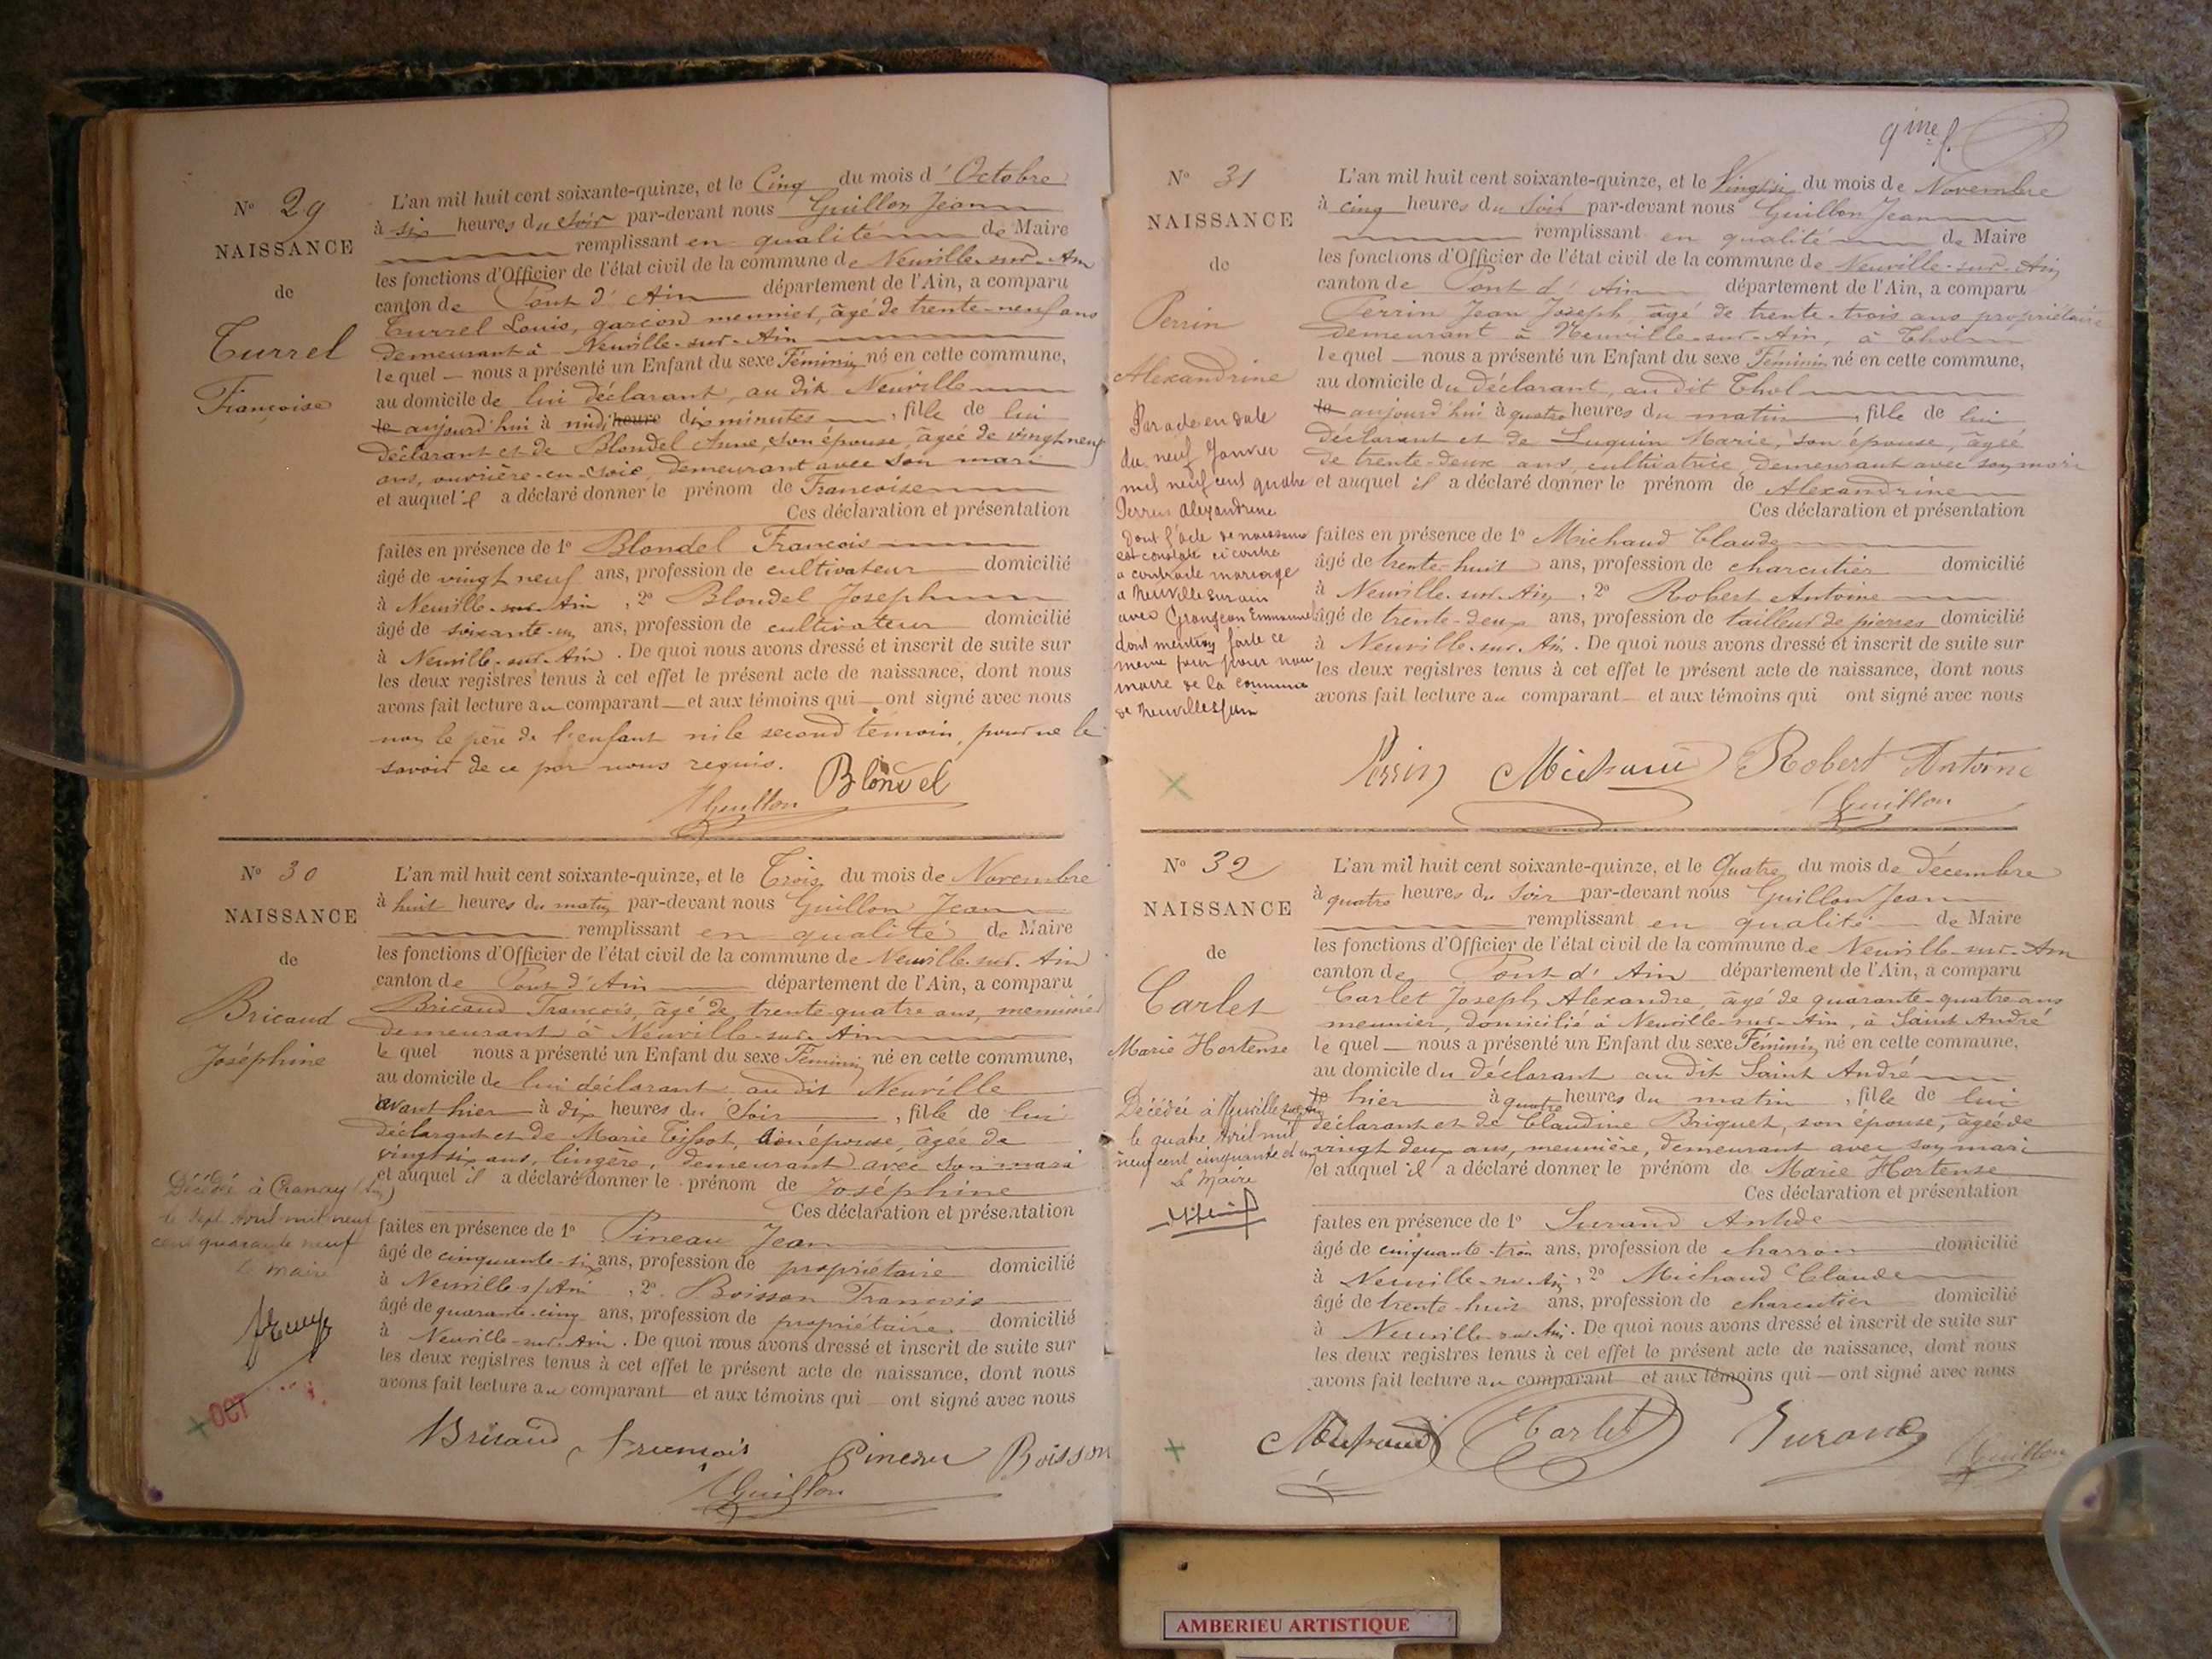 N° 29
NAISSANCE
de
Turrel
Françoise
L'an mil huit cent soixante-quinze, et le Cinq du mois d'Octobre
à six heures du soir par-devant nous Guillon Jean
remplissant en qualité de Maire
les fonctions d'Officier de l'état civil de la commune de Neuville-sur-Ain
canton de Pont d'Ain département de l'Ain, a comparu
Turrel Louis, garçon meunier, âgé de trente-neuf ans
demeurant à Neuville-sur-Ain
lequel nous a présenté un Enfant du sexe Féminin né en cette commune,
au domicile de lui déclarant, au dit Neuville
le aujourd'hui à midi heure dix minutes, fille de lui
déclarant et de Blondel Anne, son épouse, âgée de vingt neuf
ans, ouvrière-en-soie, demeurant avec son mari
et auquel il a déclaré donner le prénom de Françoise
Ces déclaration et présentation
faites en présence de 1° Blondel François
âgé de vingt neuf ans, profession de cultivateur domicilié
à Neuville-sur-Ain, 2° Blondel Joseph
âgé de soixante-un ans, profession de cultivateur domicilié
à Neuville-sur-Ain. De quoi nous avons dressé et inscrit de suite sur
les deux registres tenus à cet effet le présent acte de naissance, dont nous
avons fait lecture au comparant et aux témoins qui ont signé avec nous
non le père de l'enfant ni le second témoin, pour ne le
savoir de ce par nous requis.
Blondel
Guillon
N° 30
NAISSANCE
de
Bricaud
Joséphine
Décédée à Chanay (Ain)
le sept Avril mil neuf
cent quarante neuf
Le Maire
OCT
L'an mil huit cent soixante-quinze, et le Trois du mois de Novembre
à huit heures du matin par-devant nous Guillon Jean
remplissant en qualité de Maire
les fonctions d'Officier de l'état civil de la commune de Neuville-sur-Ain
canton de Pont d'Ain département de l'Ain, a comparu
Bricaud François, âgé de trente-quatre ans, menuisier
demeurant à Neuville-sur-Ain
lequel nous a présenté un Enfant du sexe Féminin né en cette commune,
au domicile de lui déclarant au dit Neuville
avant hier à dix heures du Soir, fille de lui
déclarant et de Marie Tissot, son épouse, âgée de
vingt-six ans, lingère, demeurant avec son mari
et auquel il a déclaré donner le prénom de Joséphine
Ces déclaration et présentation
faites en présence de 1° Pineau Jean
âgé de cinquante-six ans, profession de propriétaire domicilié
à Neuville s/Ain, 2° Boisson François
âgé de quarante-cinq ans, profession de propriétaire domicilié
à Neuville-sur-Ain. De quoi nous avons dressé et inscrit de suite sur
les deux registres tenus à cet effet le présent acte de naissance, dont nous
avons fait lecture au comparant et aux témoins qui ont signé avec nous
Bricaud François Pineau Boisson
Guillon
9me f.
N° 31
NAISSANCE
de
Perrin
Alexandrine
Par acte en date
du neuf Janvier
mil neuf cent quatre
Perrin Alexandrine
dont l'acte de naissance
est constaté ci contre
a contracté mariage
à Neuville sur ain
avec Grangeon Emmanuel
dont mention faite ce
même jour par nous
maire de la commune
de Neuville s/ain
L'an mil huit cent soixante-quinze, et le Vingtsix du mois de Novembre
à cinq heures du Soir par-devant nous Guillon Jean
remplissant en qualité de Maire
les fonctions d'Officier de l'état civil de la commune de Neuville-sur-Ain
canton de Pont d'Ain département de l'Ain, a comparu
Perrin Jean Joseph, âgé de trente-trois ans propriétaire
demeurant à Neuville-sur-Ain, à Thol
lequel nous a présenté un Enfant du sexe Féminin né en cette commune,
au domicile du déclarant, au dit Thol
le aujourd'hui à quatre heures du matin, fille de lui
déclarant et de Luquin Marie, son épouse, âgée
de trente-deux ans, cultivatrice, demeurant avec son mari
et auquel il a déclaré donner le prénom de Alexandrine
Ces déclaration et présentation
faites en présence de 1° Michaud Claude
âgé de trente-huit ans, profession de charcutier domicilié
à Neuville-sur-Ain, 2° Robert Antoine
âgé de trente-deux ans, profession de tailleur de pierres domicilié
à Neuville-sur-Ain. De quoi nous avons dressé et inscrit de suite sur
les deux registres tenus à cet effet le présent acte de naissance, dont nous
avons fait lecture au comparant et aux témoins qui ont signé avec nous
Perrin Michaud Robert Antoine
Guillon
N° 32
NAISSANCE
de
Carlet
Marie Hortense
Décédée à Neuville sur Ain
le quatre Avril mil
neuf cent cinquante et un
Le Maire
L'an mil huit cent soixante-quinze, et le Quatre du mois de Décembre
à quatre heures du Soir par-devant nous Guillon Jean
remplissant en qualité de Maire
les fonctions d'Officier de l'état civil de la commune de Neuville-sur-Ain
canton de Pont d'Ain département de l'Ain, a comparu
Carlet Joseph Alexandre, âgé de quarante-quatre ans
meunier, domicilié à Neuville-sur-Ain, à Saint André
lequel nous a présenté un Enfant du sexe Féminin né en cette commune,
au domicile du déclarant au dit Saint André
le hier à quatre heures du matin, fille de lui
déclarant et de Claudine Briquet, son épouse, âgée de
vingt deux ans, meunière, demeurant avec son mari
et auquel il a déclaré donner le prénom de Marie Hortense
Ces déclaration et présentation
faites en présence de 1° Surand Antide
âgé de cinquante-trois ans, profession de charron domicilié
à Neuville-sur-Ain, 2° Michaud Claude
âgé de trente-huit ans, profession de charcutier domicilié
à Neuville-sur-Ain. De quoi nous avons dressé et inscrit de suite sur
les deux registres tenus à cet effet le présent acte de naissance, dont nous
avons fait lecture au comparant et aux témoins qui ont signé avec nous
Michaud Carlet Surand Guillon
AMBERIEU ARTISTIQUE